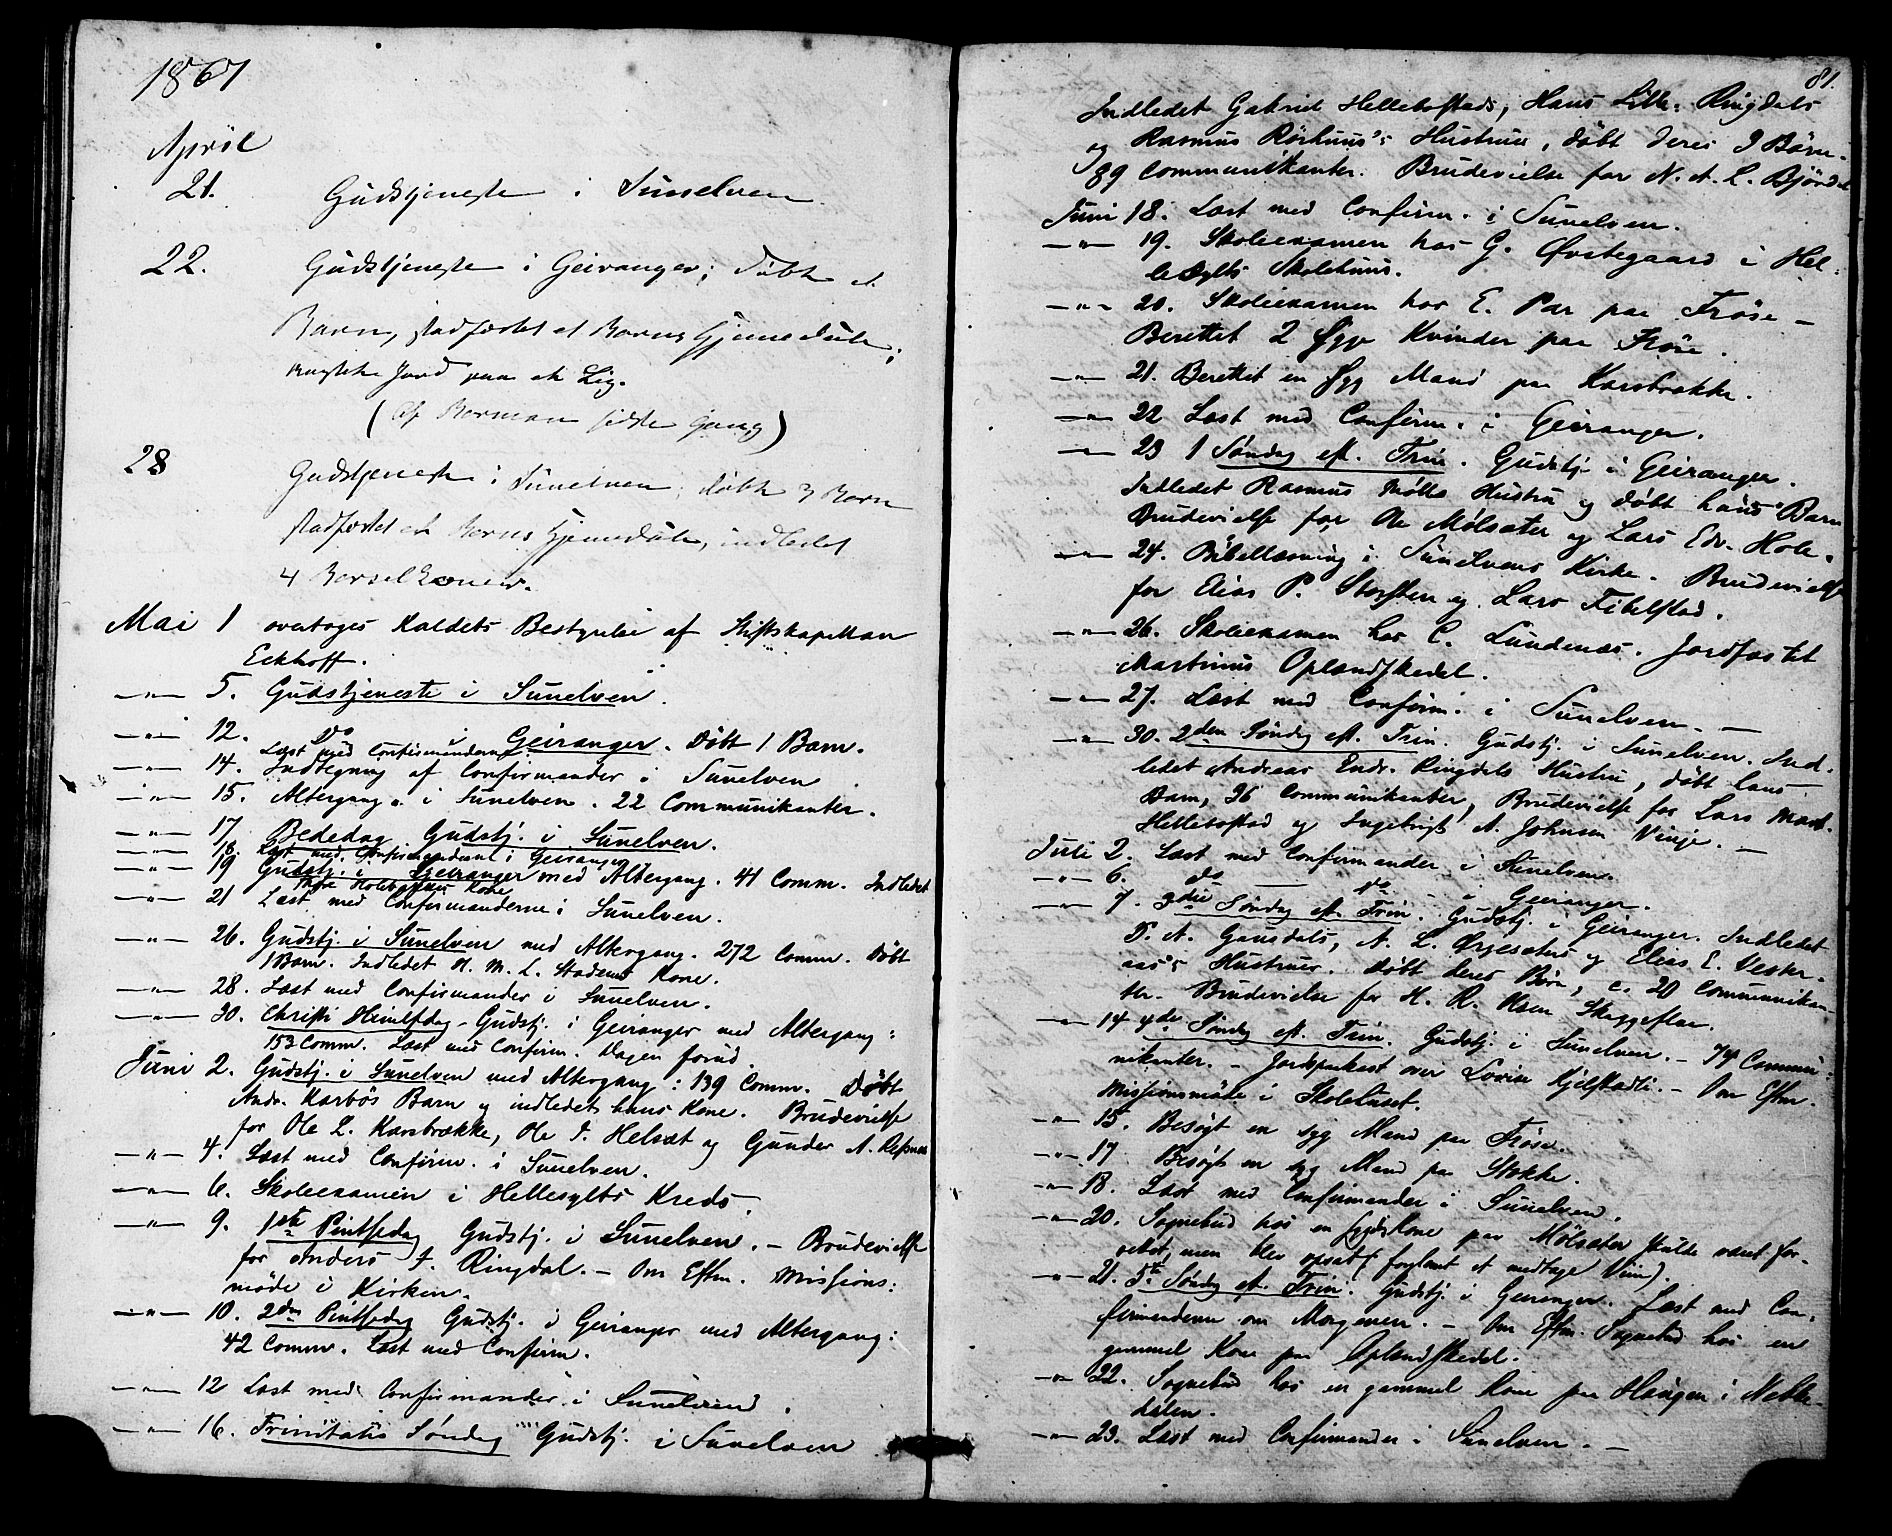 1867
April
21. Gudstjeneste i Sunelven.
22. Gudstjeneste i Geiranger; døbt et
Barn, stadfæstet et Barns Hjemmedaab;
kastet Jord paa et Lig.
(af Norman sidste Gang)
28 Gudstjeneste i Sunelven; døbt 3 Børn
stadfæstet et Barns Hjemmedaab, indledet
4 Barselkoner.
Mai 1 overtoges Kaldets Bestyrelse af Stiftskapellan
Eckhoff.
—"— 5. Gudstjeneste i Sunelven.
—"— 12. Do i Geiranger. Døbt 1 Barn.
Læst med Confirmanderne.
—"— 14. Indtegning af Confirmander i Sunelven
—"— 15. Altergang i Sunelven. 22 Communikanter.
—"— 17. Bededag Gudstj. i Sunelven.
—"— 18. Læst med Confirmanderne i Geiranger.
—"— 19 Gudstj. i Geiranger med Altergang. 41 Comm. Indledet
Kone
—"— 21 Læst med Confirmanderne i Sunelven.
—"— 26. Gudstj. i Sunelven med Altergang. 272 Comm. Døbt
1 Barn. Indledet H. M. L. Kone.
—"— 28. Læst med Confirmander i Sunelven.
—"— 30. Christi Himlfdag. Gudstj. i Geiranger med Altergang:
153 Comm. Læst med Confirm. Dagen forud.
Juni 2. Gudstj. i Sunelven med Altergang: 139 Comm. Døbt
Andr. Karbøs Barn og indledet hans Kone. Brudevielse
for Ole L. Karsbrække, Ole I. Helsæt og Gunder A.
—"— 4. Læst med Confirm. i Sunelven.
—"— 6. Skoleexamen i Hellesylts Kreds.
—"— 9. 1ste Pintsedag Gudstj. i Sunelven. — Brudevielse
for Anders I. Ringdal. — Om Eftm. Missions:
møde i Kirken.
—"— 10. 2den Pintsedag Gudstj. i Geiranger med Altergang:
42 Comm. Læst med Confirm.
—"— 12 Læst med Confirmander i Sunelven.
—"— 16. Trinitatis Søndag Gudstj. i Sunelven
81.
Indledet Gabriel Hellebostads, Hans Lille-Ringdals
og Rasmus Rørhuus's Hustruer, døbt deres 3 Børn.
89 Communikanter. Brudevielse for N. A. L. Bjørdal
Juni 18. Læst med Confirm. i Sunelven.
—"— 19. Skoleexamen hos G. Øvstegaard i Hel-
lesylts Skolehuus.
—"— 20. Skoleexamen hos E. Par paa Frøse —
Berettet 2 syge Kvinder paa Frøse.
—"— 21. Berettet en syg Mand paa Karsbrække.
—"— 22 Læst med Confirm. i Geiranger.
—"— 23 1 Søndag eft. Trin. Gudstj. i Geiranger.
Indledet Rasmus Hustru og døbt hans Barn
Brudevielse for Ole Mølsæter og Lars Edv. Hole.
—"— 24. Bibellæsning i Sunelvens Kirke. Brudevielse
for Elias P. Storsten og Lars Fibelstad.
—"— 26. Skoleexamen hos C. Lundenæs. Jordfæstet
Martinus Oplandskedel.
—"— 27. Læst med Confirm. i Sunelven. —
—"— 30. 2den Søndag eft. Trin. Gudstj. i Sunelven. Ind-
ledet Andreas Endr. Ringdals Hustru, døbt hans
Barn, 36 Communikanter, Brudevielse for Lars Mart.
Hellebostad og Ingebrigt A. Johnsen Vinje. —
Juli 2. Læst med Confirmander i Sunelven.
—"— 6. do — do — i Geiranger.
—"— 7. 3die Søndag eft. Trin. Gudstj. i Geiranger. Indledet
P. A. Gausdals, A. L. Ørjesæters og Elias E. Vester-
aas's Hustruer. Døbt deres Børn, c. 20 Communikan-
ter. Brudevielse for H. R. Skaggeflaa.
—"— 14 4de Søndag eft. Trin. Gudstj. i Sunelven. — 74 Commu:
nikanter. — Jordspaakast over Lovise Kjelstadli. — Om Eftm.
Missionsmøde i Skolehuset.
—"— 15. Besøgt en syg Mand paa Frøse.
—"— 17. Besøgt en syg Mand paa Stokke.
—"— 18. Læst med Confirmander i Sunelven.
—"— 20. Sognebud hos en syg Kone paa Mølsæter skulde været for-
rettet, men blev opsat (forglemt at medtage Viin).
—"— 21. 5te Søndag eft. Trin. Gudstj. i Geiranger. Læst med Con-
firmanderne om Morgenen. — Om Eftm. Sognebud hos en
gammel Kone paa Oplandskedel.
—"— 22. Sognebud hos en gammel Kone paa Haugen i Nebbe-
dalen.
—"— 23. Læst med Confirmander i Sunelven. —